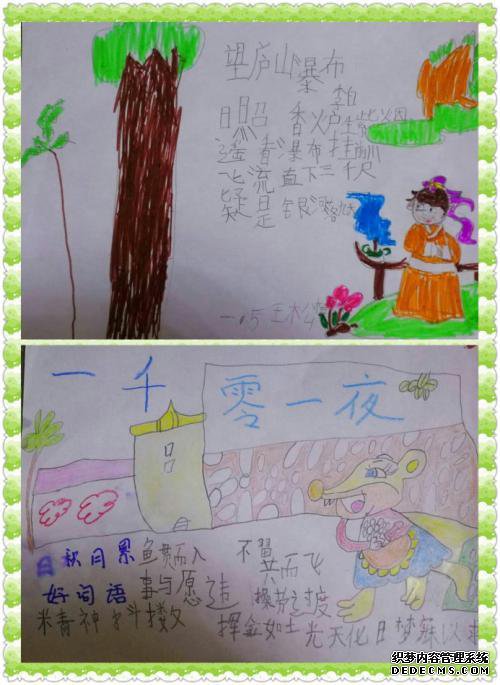 望庐山瀑布
李白
日照香炉生紫烟
遥看瀑布挂前川
飞流直下三千尺
疑是银河落九天
一.5 王
一千零一夜
日积月累 鱼贯而入 不翼而飞
好句语 事与愿违 操劳过度
精神抖擞 挥金如土 光天化日 梦寐以求
织梦内容管理系统
DEDECMS.COM